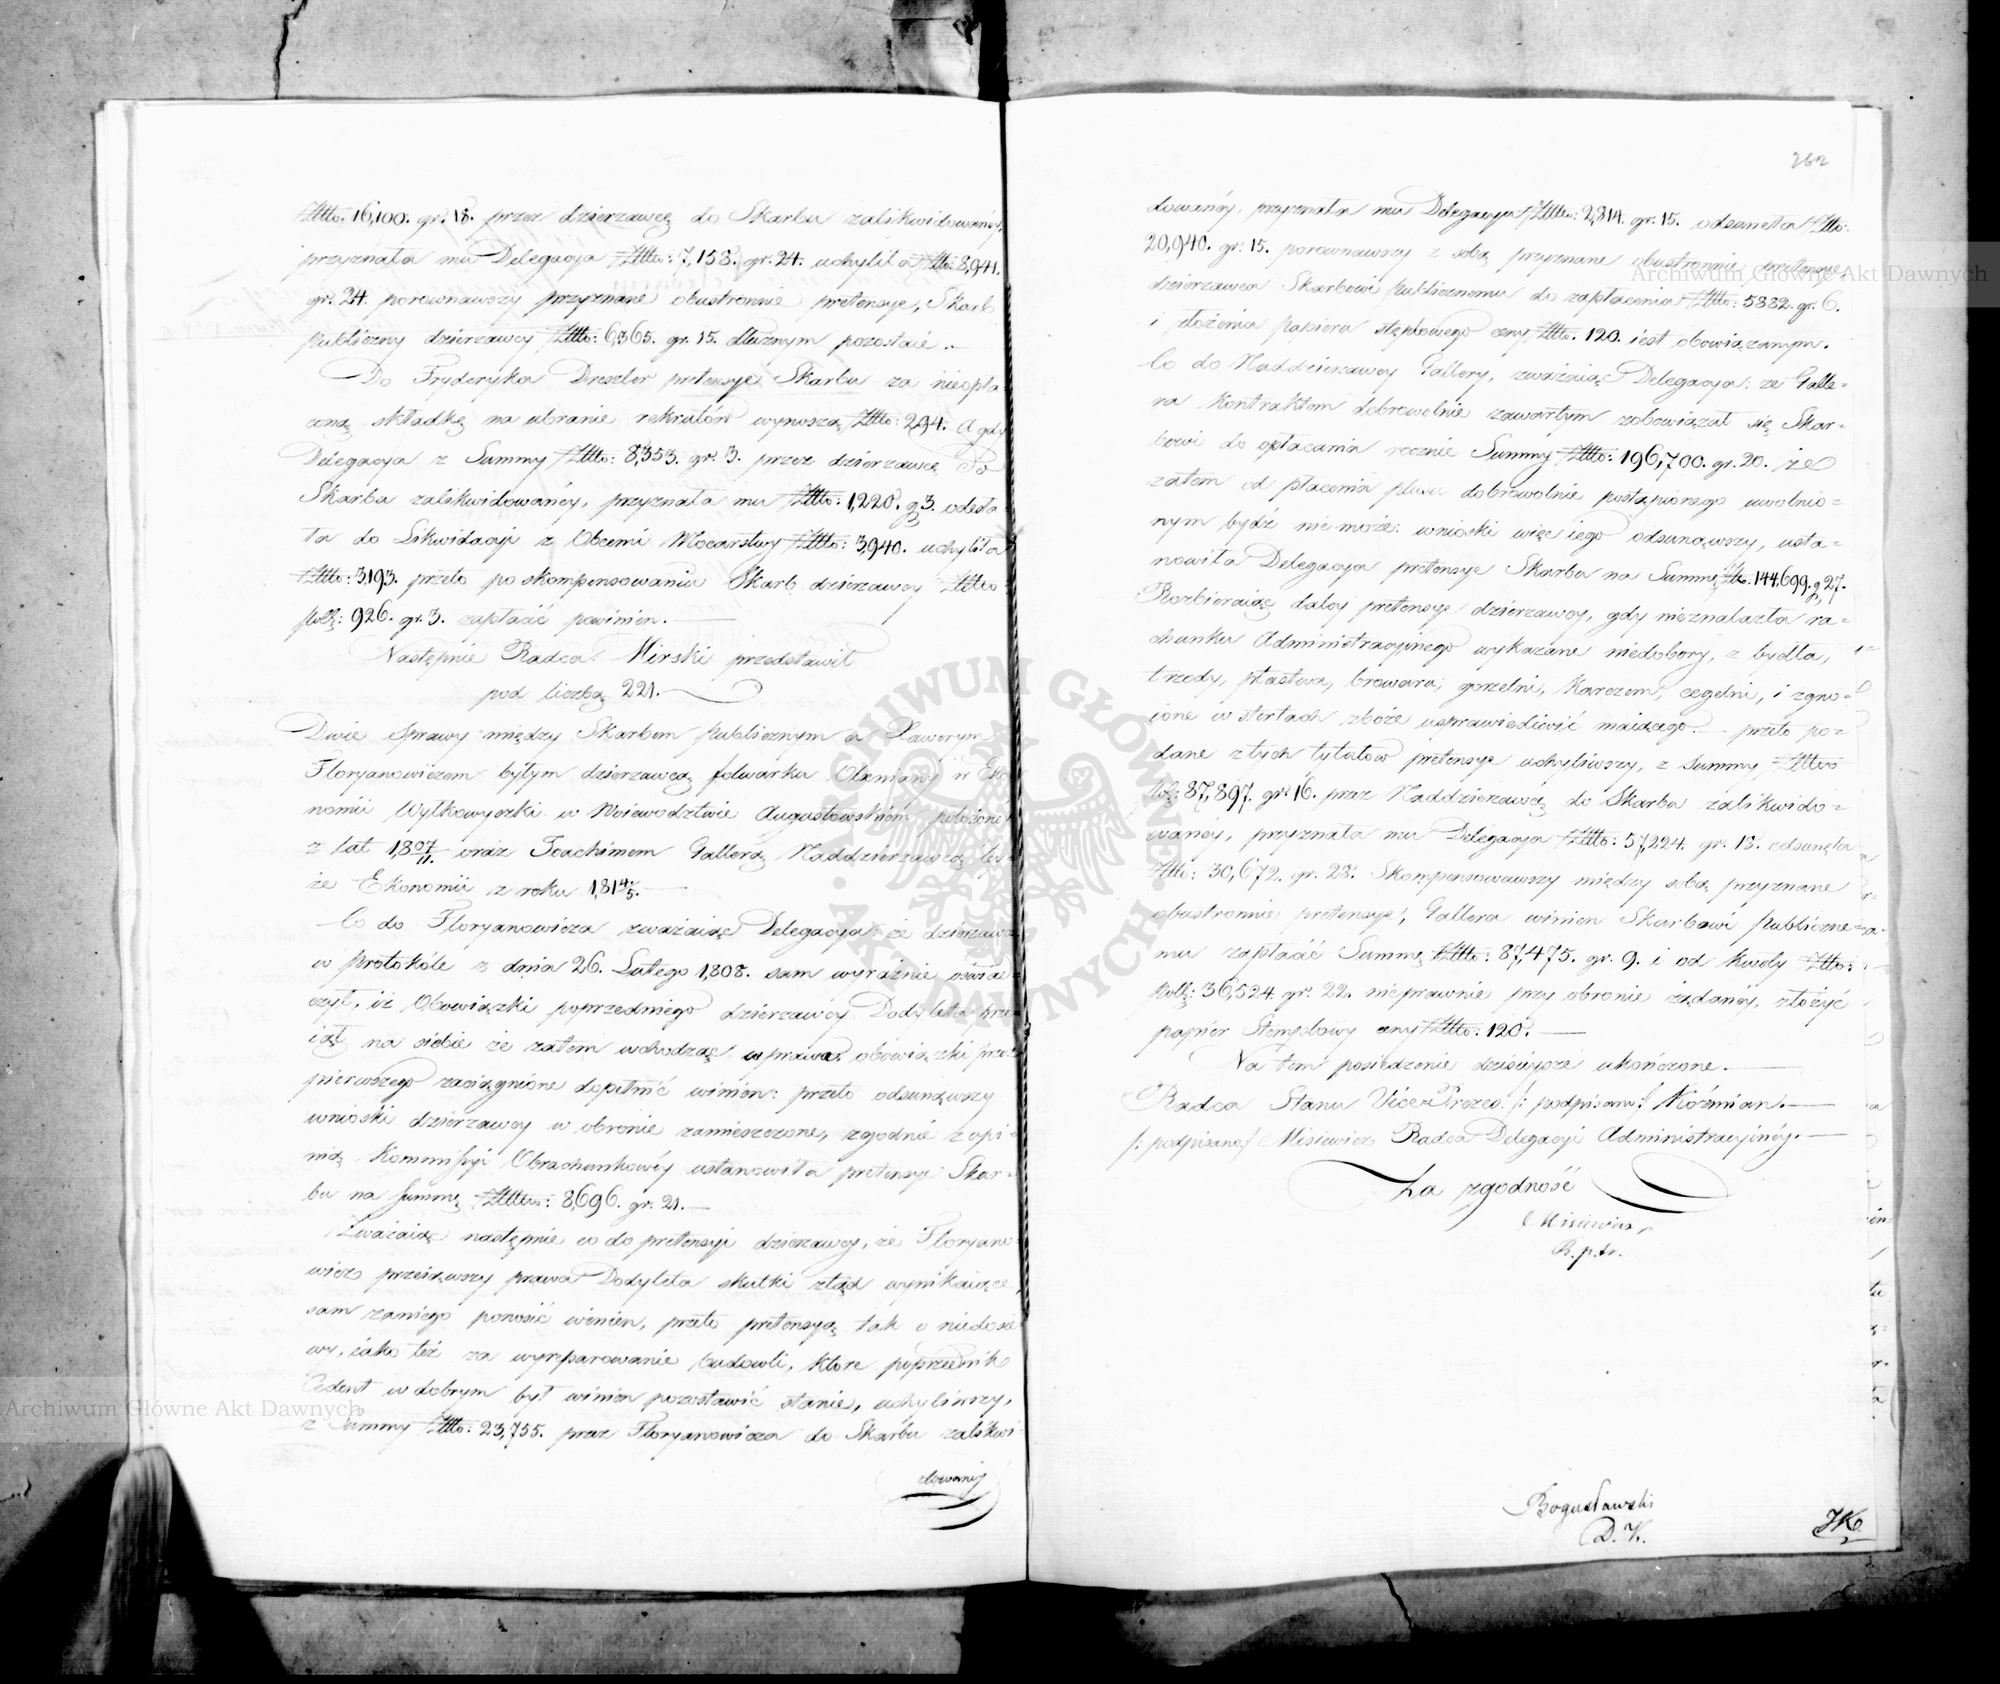 Złtto: 16,100. gr: 18. przez dzierzawcę do Skarbu zalikwidowaney,
przyznała mu Delegacya Złtto: 7,158. gr: 24. uchyliła Złtto: 8,941.
gr: 24. porownawszy przyznane obustronnie pretensye, Skarb
publiczny dzierzawcy Złtto: 6,365. gr. 15. dłużnym pozostaie.
Do Fryderyka Dreszler pretensye Skarbu za nieopła
coną składkę na ubranie rekrutów wynoszą Złtto: 294. A gdy
Delegacya z Summy Złtto: 8,353. gr. 3. przez dzierzawcę do
Skarbu zalikwidowaney, przyznała mu Złtto: 1,220. g 3. odesła
ła do Likwidacyi z Obcemi Mocarstwy Złtto: 3,940. uchyliła
Złtto: 3,193. przeto po skompensowaniu Skarb dzierzawcy Złtto
polł: 926. gr. 3. zapłacić powinien.
Następnie Radca Mirski przedstawił
pod liczbą 221.
Dwie Sprawy między Skarbem publicznym a Xawerym
Floryanowiczem byłym dzierzawcą folwarku Olxniany w Eko
nomii Wyłkowyszki w Woiewodztwie Augustowskim położone
z lat 1,807/11. oraz Joachimem Gallerą Naddzierzawcą tey
że Ekonomii z roku 1,814/5.
Co do Floryanowicza zważaiąc Delegacya: że dzierzawca
w protokóle z dnia 26. Lutego 1,808. sam wyraźnie oświad
czył, iż Obowiązki poprzedniego dzierzawcy Dodyleta prze
iął na siebie że zatem wchodząc w prawa obowiązki przez
pierwszego zaciągnione dopełnić winien: przeto odsunąwszy
wnioski dzierzawcy w obronie zamieszczone, zgodnie z opi
nią Kommissyi Obrachunkowéy ustanowiła pretensye Skar=
bu na Summę Złtto: 8,696. gr. 21.
Zważaiąc następnie co do pretensyi dzierzawcy, że Floryano
wicz przeiąwszy prawa Dodyleta skutki ztąd wynikaiące,
sam zaniego ponosić winien, przeto pretensyą tak o niedosie
wy, iako też za wyreparowanie budowli, które poprzednik
Cedent w dobrym był winien pozostawić stanie, uchyliwszy,
z Summy Złtto: 23,755. przez Floryanowicza do Skarbu zalikwi
dowaney
262
dowanéy, przyznała mu Delegacya Złtto: 2,814. gr. 15. odsunęła Złtto:
20,940. gr: 15. porownawszy z sobą przyznane obustronnie pretensye,
dzierzawca Skarbowi publicznemu do zapłacenia Złtto: 5882. gr. 6.
i złożenia papieru stęplowego ceny Złtto. 120. iest obowiązanym.
Co do Naddzierzawcy Gallery, zważaiąc Delegacya: że Galle=
ra Kontraktem dobrowolnie zawartym zobowiązał się Skar=
bowi do opłacania rocznie Summy Złtto: 196,700. gr. 20. że
zatem od płacenia plusu dobrowolnie postąpionego uwolnio=
nym bydź nie może: wnioski więc iego odsunąwszy, usta=
nowiła Delegacya pretensye Skarbu na Summę Złtto. 144,699. g 27.
Rozbieraiąc daléy pretensye dzierzawcy, gdy nieznalazła ra=
chunku Administracyinego wykazane niedobory, z bydła,
trzody, ptastwa, browaru, gorzelni, Karczem, cegelni, i zgno=
ione w stertach zboże usprawiedliwić maiącego. przeto po=
dane z tych tytułów pretensye uchyliwszy, z Summy Złtto
Polł: 87,897. gr. 16. przez Naddzierzawcę do Skarbu zalikwido=
wanéy, przyznała mu Delegacya Złtto: 57,224. gr. 18. odsunęła
Złtto: 30,672. gr. 28. Skompensowawszy między sobą przyznane
obustronnie pretensye, Gallera winien Skarbowi publiczne=
mu zapłacić Summę Złtto: 87,475. gr. 9. i od kwoty Złtto:
polł: 36,524. gr. 22. nieprawnie przy obronie żądanéy, złożyć
papier Stemplowy ceny Złtto: 120.
Na tem posiedzenie dzisieysze ukończone.
Radca Stanu Vice Prezes /: podpisano / Koźmian.
/: podpisano / Misiewicz Radca Delegacyi Administracyinéy.
Za zgodność
Misiewicz
R. p. tr.
Bogusławski
D. K.
Archiwum Główne Akt Dawnych
Archiwum Główne Akt Dawnych
ARCHIWUM GŁÓWNE AKT DAWNYCH